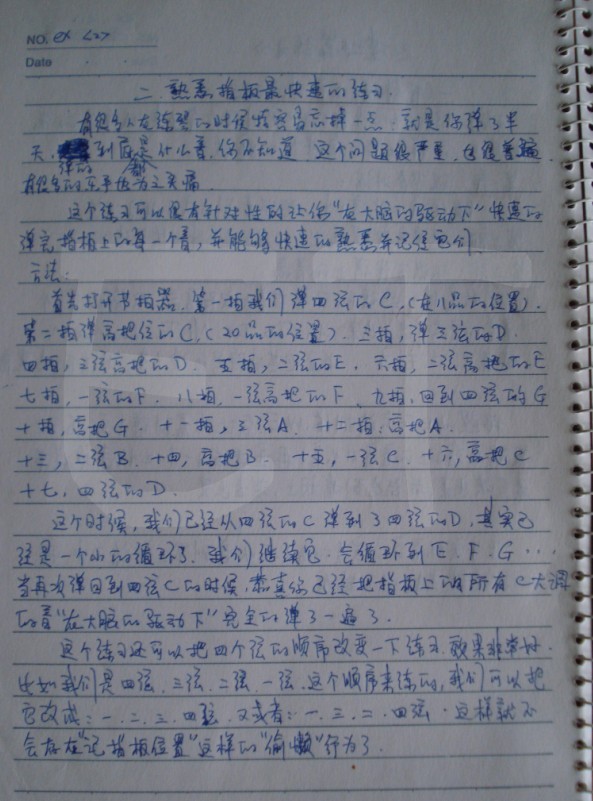 NO. ex <2>
Date
二. 熟悉指板最快速的练习.
有很多人在练琴的时候很容易忘掉一点. 就是你弹了半
天, 弹的到底都是什么音, 你不知道. 这个问题很严重, 也很普遍.
有很多的乐手也为之头痛.
这个练习可以很有针对性的让你"在大脑的驱动下"快速的
弹完指板上的每一个音, 并能够快速的熟悉并记住它们.
方法:
首先打开节拍器. 第一拍我们弹四弦的C, (在八品的位置).
第二拍弹高把位的C, (20品的位置). 三拍, 弹三弦的D.
四拍, 三弦高把的D. 五拍, 二弦的E. 六拍, 二弦高把的E
七拍, 一弦的F. 八拍, 一弦高把的F. 九拍, 回到四弦的G
十拍, 高把G. 十一拍, 三弦A. 十二拍: 高把A.
十三, 二弦B. 十四, 高把B. 十五, 一弦C. 十六, 高把C
十七. 四弦的D.
这个时候, 我们已经从四弦的C弹到了四弦的D, 其实已
经是一个小的循环了. 我们继续它. 会循环到E. F. G...
当再次弹回到四弦C的时候, 恭喜你已经把指板上的所有C大调
的音"在大脑的驱动下"完全的弹了一遍了.
这个练习还可以把四个弦的顺序改变一下练习. 效果非常好.
比如我们是四弦. 三弦. 二弦. 一弦. 这个顺序来练的, 我们可以把
它改成: 一. 二. 三. 四弦. 又或者: 一. 三. 二. 四弦. 这样就不
会存在"记指板位置"这样的"偷懒"行为了.